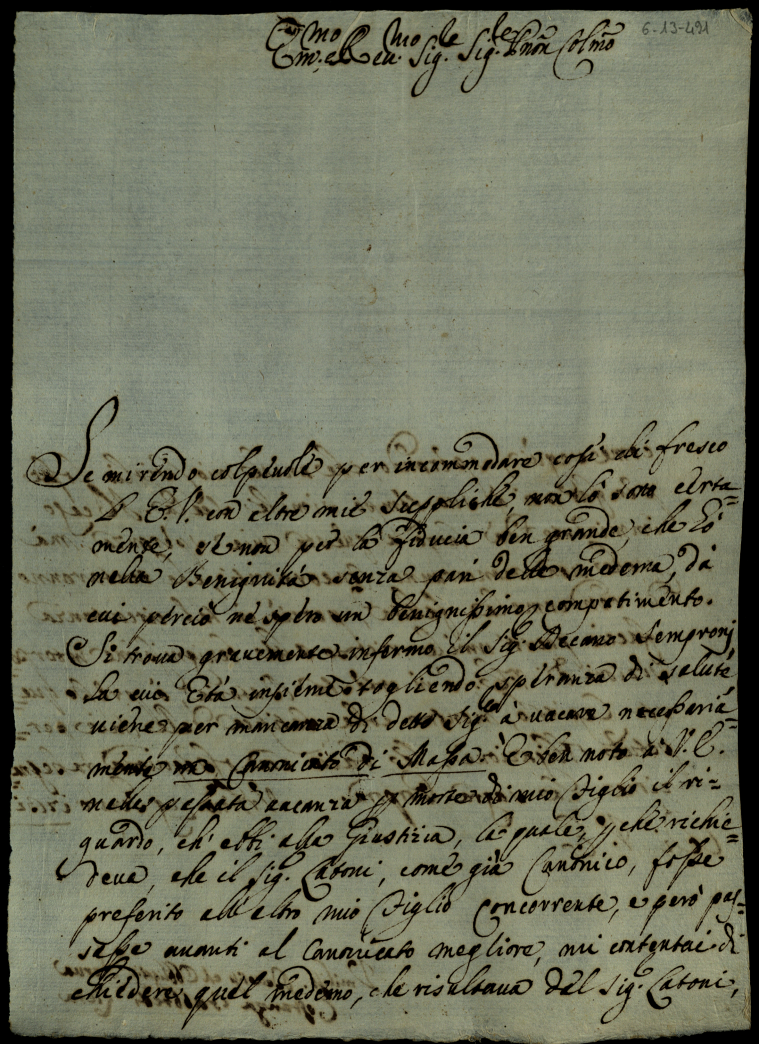 6-13-491
Em.mo e Rev.mo Sig.re Sig.re P̃ron Colmo
Se mi rendo colpeuole per incommodare così di fresco
L' E. V. con altre mie Suppliche, non lo sono certa=
mente, se non per la fiducia ben grande, che hò
nella Benignità senza pari della medema, dà
cui perciò ne spero un benignissimo compatimento.
Si troua grauemente infermo il Sig. Decano Sempronij
la cui Età insieme togliendo speranza di salute
uiene per mancanza di detto Sig.re à uacare necessaria=
mente un Canonicato di Massa. È ben noto à V. E.
nella passata uacanza p morte di mio Figlio il ri=
guardo, ch' ebbi alla Giustizia, la quale, p che richie=
deua, che il Sig. Catoni, come già Canonico, fosse
preferito all' altro mio Figlio Concorrente, e però pas=
sasse auanti al Canonicato megliore, mi contentai di
chiedere quel medemo, che risultaua dal Sig. Catoni,